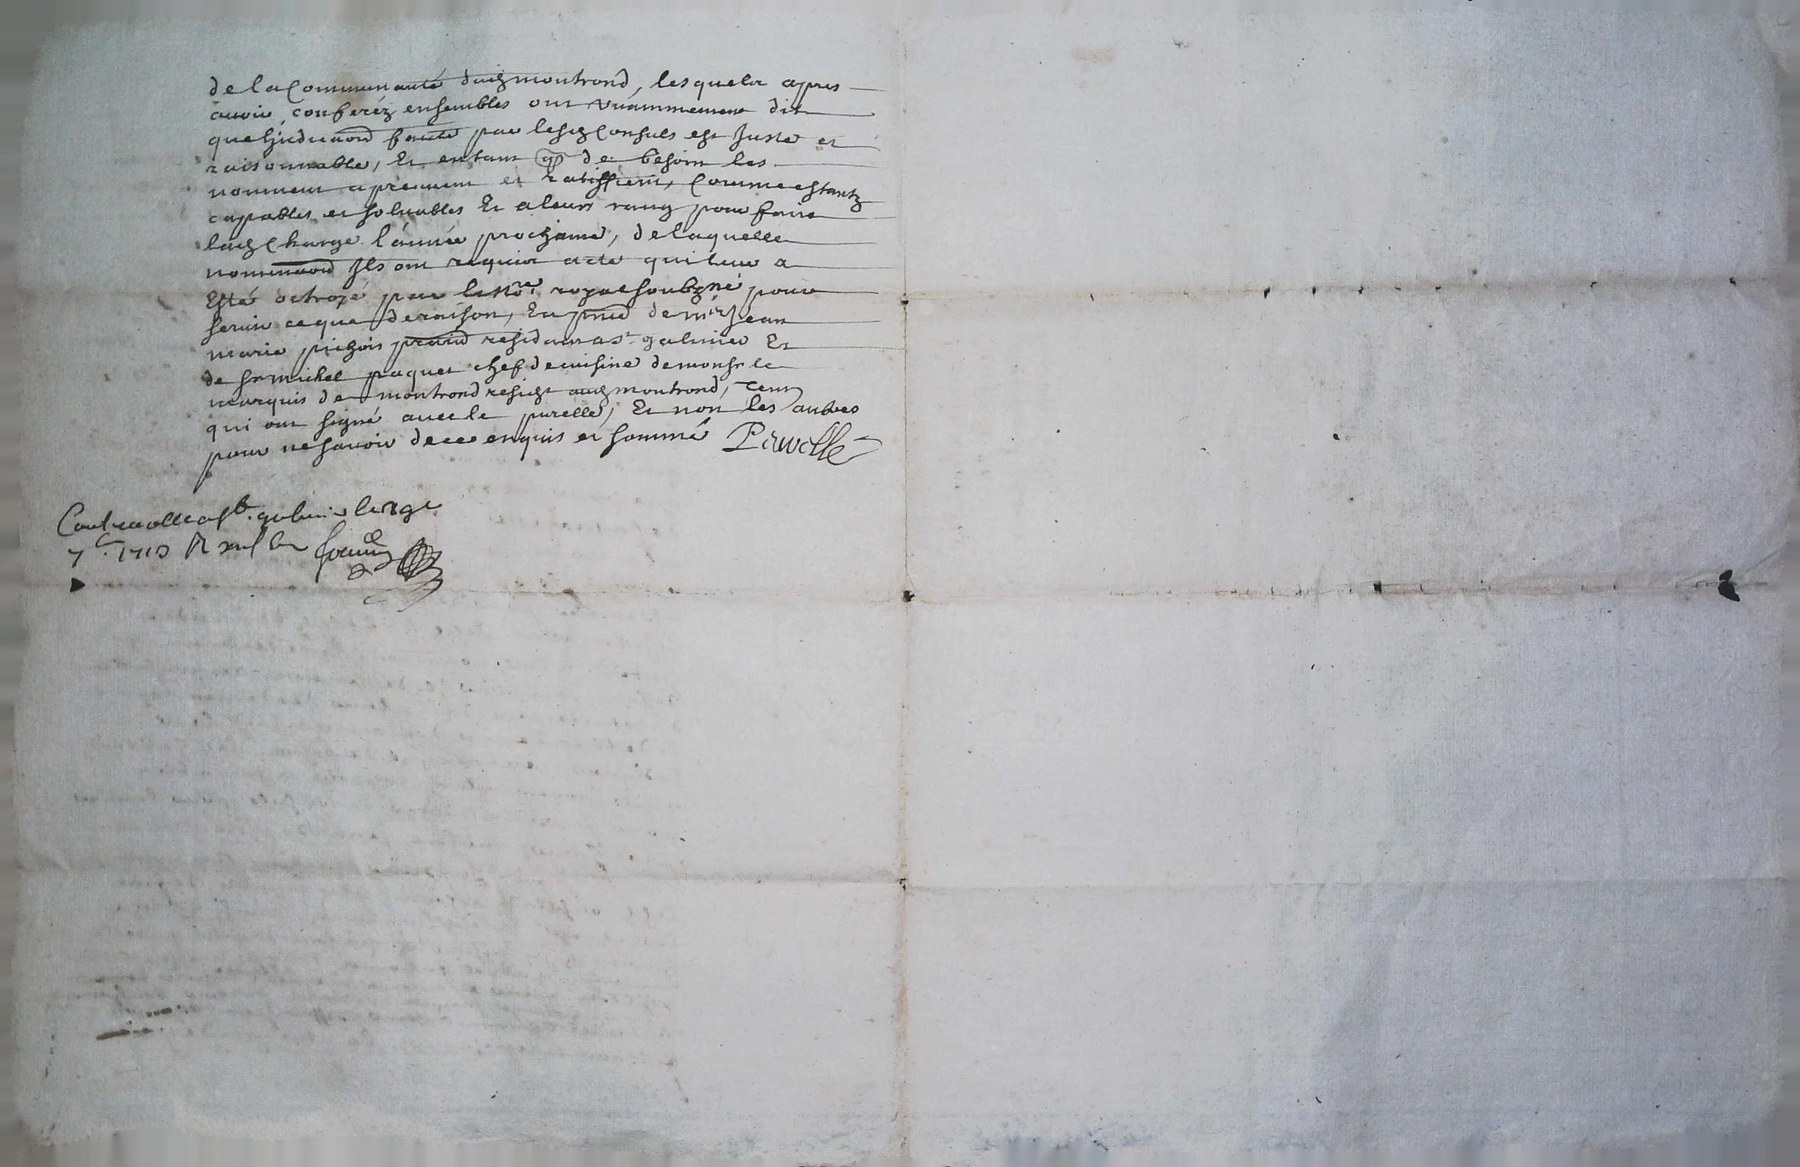 de la Communauté dud montrond, lesquels apres
avoir conferéz ensembles ont unanimement dit
que faite par lesd Consuls est Juste et
raisonnable, Et en tant que de besoin les
nomment apreuvent et ratiffient, Comme estantz
capables et solvables Et a leur rang pour faire
lad Charge l'année prochaine, de laquelle
nomina̅on̅ Ils ont requis acte qui leur a
Esté octroyé par le no.re royal soubz.né pour
servir ce que de raison, En pn̅ce de m.re Jean
marie pichois residant a st galmier Et
de sr michel paquet chef de cuisine de monsr le
marquis de montrond resid aud montrond, Temz
qui ont signé avec le purelle, Et non les autres
pour ne scavoir de ce enquis et sommé Parcelle
Controolle a st. galmier le
7.e 1713 R six s